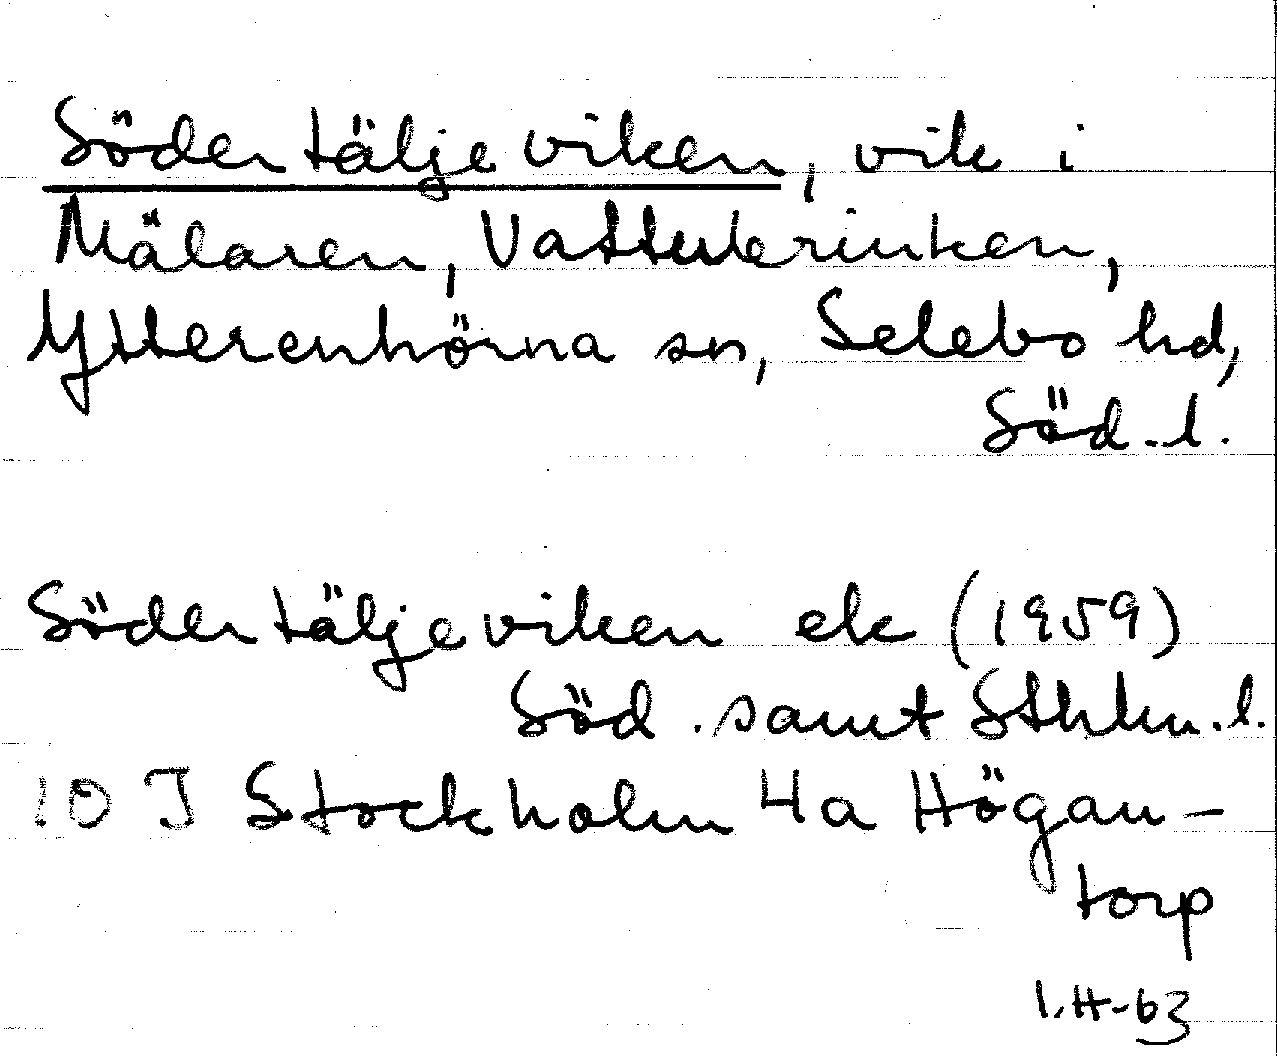 Södertäljeviken, vik i
Mälaren, Vattubrinken,
Ytterenhörna sn, Selebo hd,
Söd. l.
Södertäljeviken ek (1959)
Söd. samt Sthlm. l.
10 J Stockholm 4a Högan-
torp
I.H-63